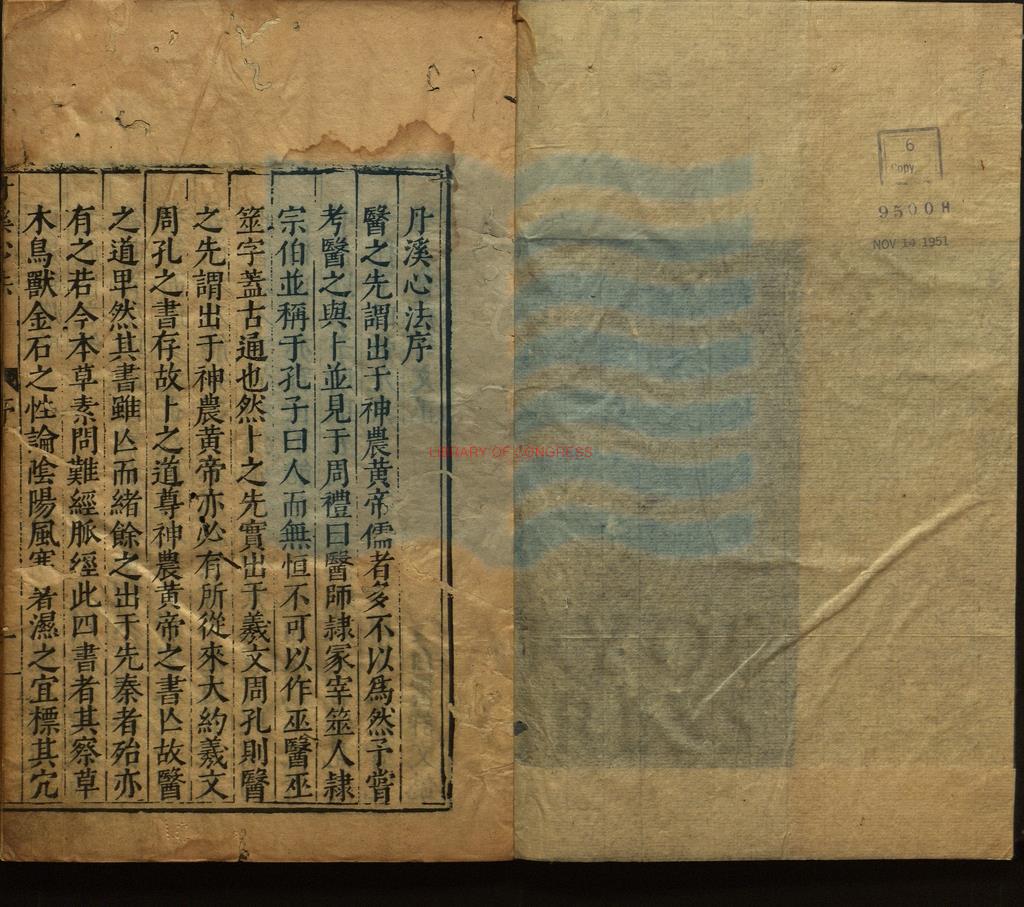 丹溪心法序
醫之先謂出于神農黃帝儒者多不以爲然予嘗
考醫之與卜並見于周禮曰醫師隷冢宰筮人隷
宗伯並稱于孔子曰人而無恒不可以作巫醫巫
筮字蓋古通也然卜之先實出于羲文周孔則醫
之先謂出于神農黃帝亦必有所從來大約羲文
周孔之書存故卜之道尊神農黃帝之書亾故醫
之道卑然其書雖亾而緒餘之出于先秦者殆亦
有之若今本草素問難經脈經此四書者其察草
木鳥獸金石之性論陰陽風寒暑濕之宜標其穴
6
Copy
9500 H
NOV 14 1951
LIBRARY OF CONGRESS